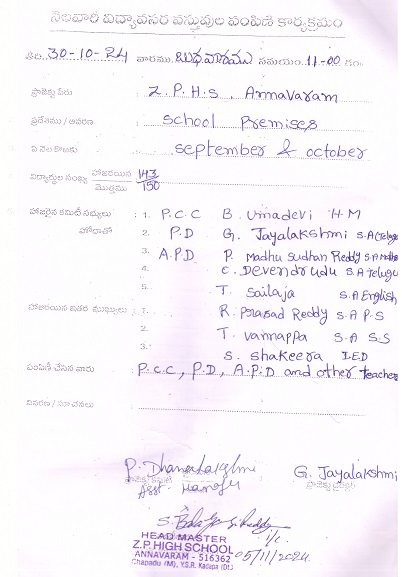 నెలవారి విద్యావసర వస్తువుల పంపిణి కార్యక్రమం
తేది. 30-10-24 వారము బుధవారము సమయం. 11-00 గం.
ప్రాజెక్టు పేరు Z.P.H.S. Annavaram
ప్రదేశము / ఆవరణ school premises
ఏ నెల కొఱకు september & october
విద్యార్థుల సంఖ్య హాజరయిన 143
మొత్తము 150
హాజరైన కమిటీ సభ్యులు : 1. P.C.C B. Umadevi H.M
హోదాతో 2. P.D G. Jayalakshmi S.A(Telugu
3. A.P.D P. Madhu Sudhan Reddy S.A Maths
4. C. Devendrudu S.A Telugu
5. T. Sailaja S.A English
హాజరయిన ఇతర ముఖ్యులు : 1. R. Prasad Reddy S.A P.S
2. T. Vannappa S.A S.S
3. S. Shakeera I.E.D
పంపిణీ చేసిన వారు : P.C.C, P.D, A.P.D and other teachers
వివరణ / సూచనలు
P. Dhanalakshmi G. Jayalakshmi
ప్రాజెక్టు కమిటీ ప్రాజెక్టు డైరెక్టర్
i/c.
HEAD MASTER
Z.P. HIGH SCHOOL 05/11/2024.
ANNAVARAM - 516362
Chapadu (M), Y.S.R. Kadapa (Dt.)